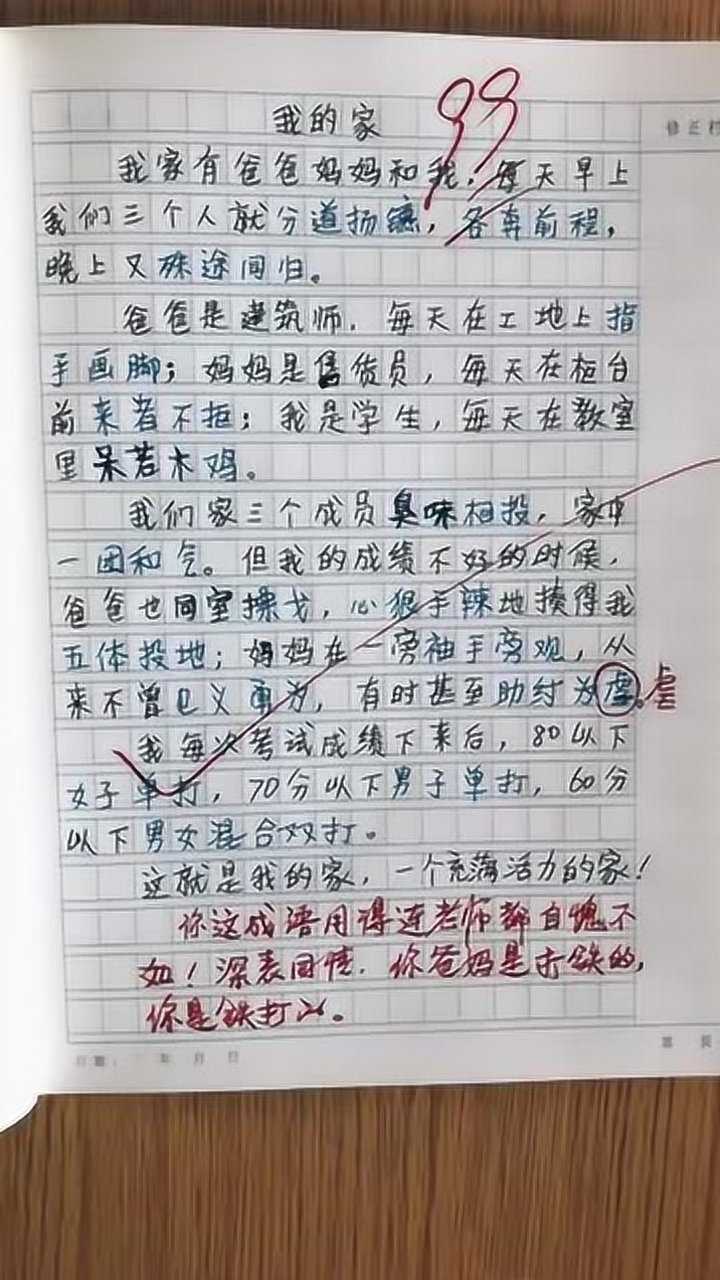 我的家
99
修正栏
我家有爸爸妈妈和我，每天早上
我们三个人就分道扬镳，各奔前程，
晚上又殊途同归。
爸爸是建筑师，每天在工地上指
手画脚；妈妈是售货员，每天在柜台
前来者不拒；我是学生，每天在教室
里呆若木鸡。
我们家三个成员臭味相投，家中
一团和气。但我的成绩不好的时候，
爸爸也同室操戈，心狠手辣地揍得我
五体投地；妈妈在一旁袖手旁观，从
来不曾见义勇为，有时甚至助纣为虐。虐
我每次考试成绩下来后，80以下
女子单打，70分以下男子单打，60分
以下男女混合双打。
这就是我的家，一个充满活力的家！
你这成语用得连老师都自愧不
如！深表同情．你爸妈是打铁的，
你是铁打的。
日期： 年 月 日
第 页